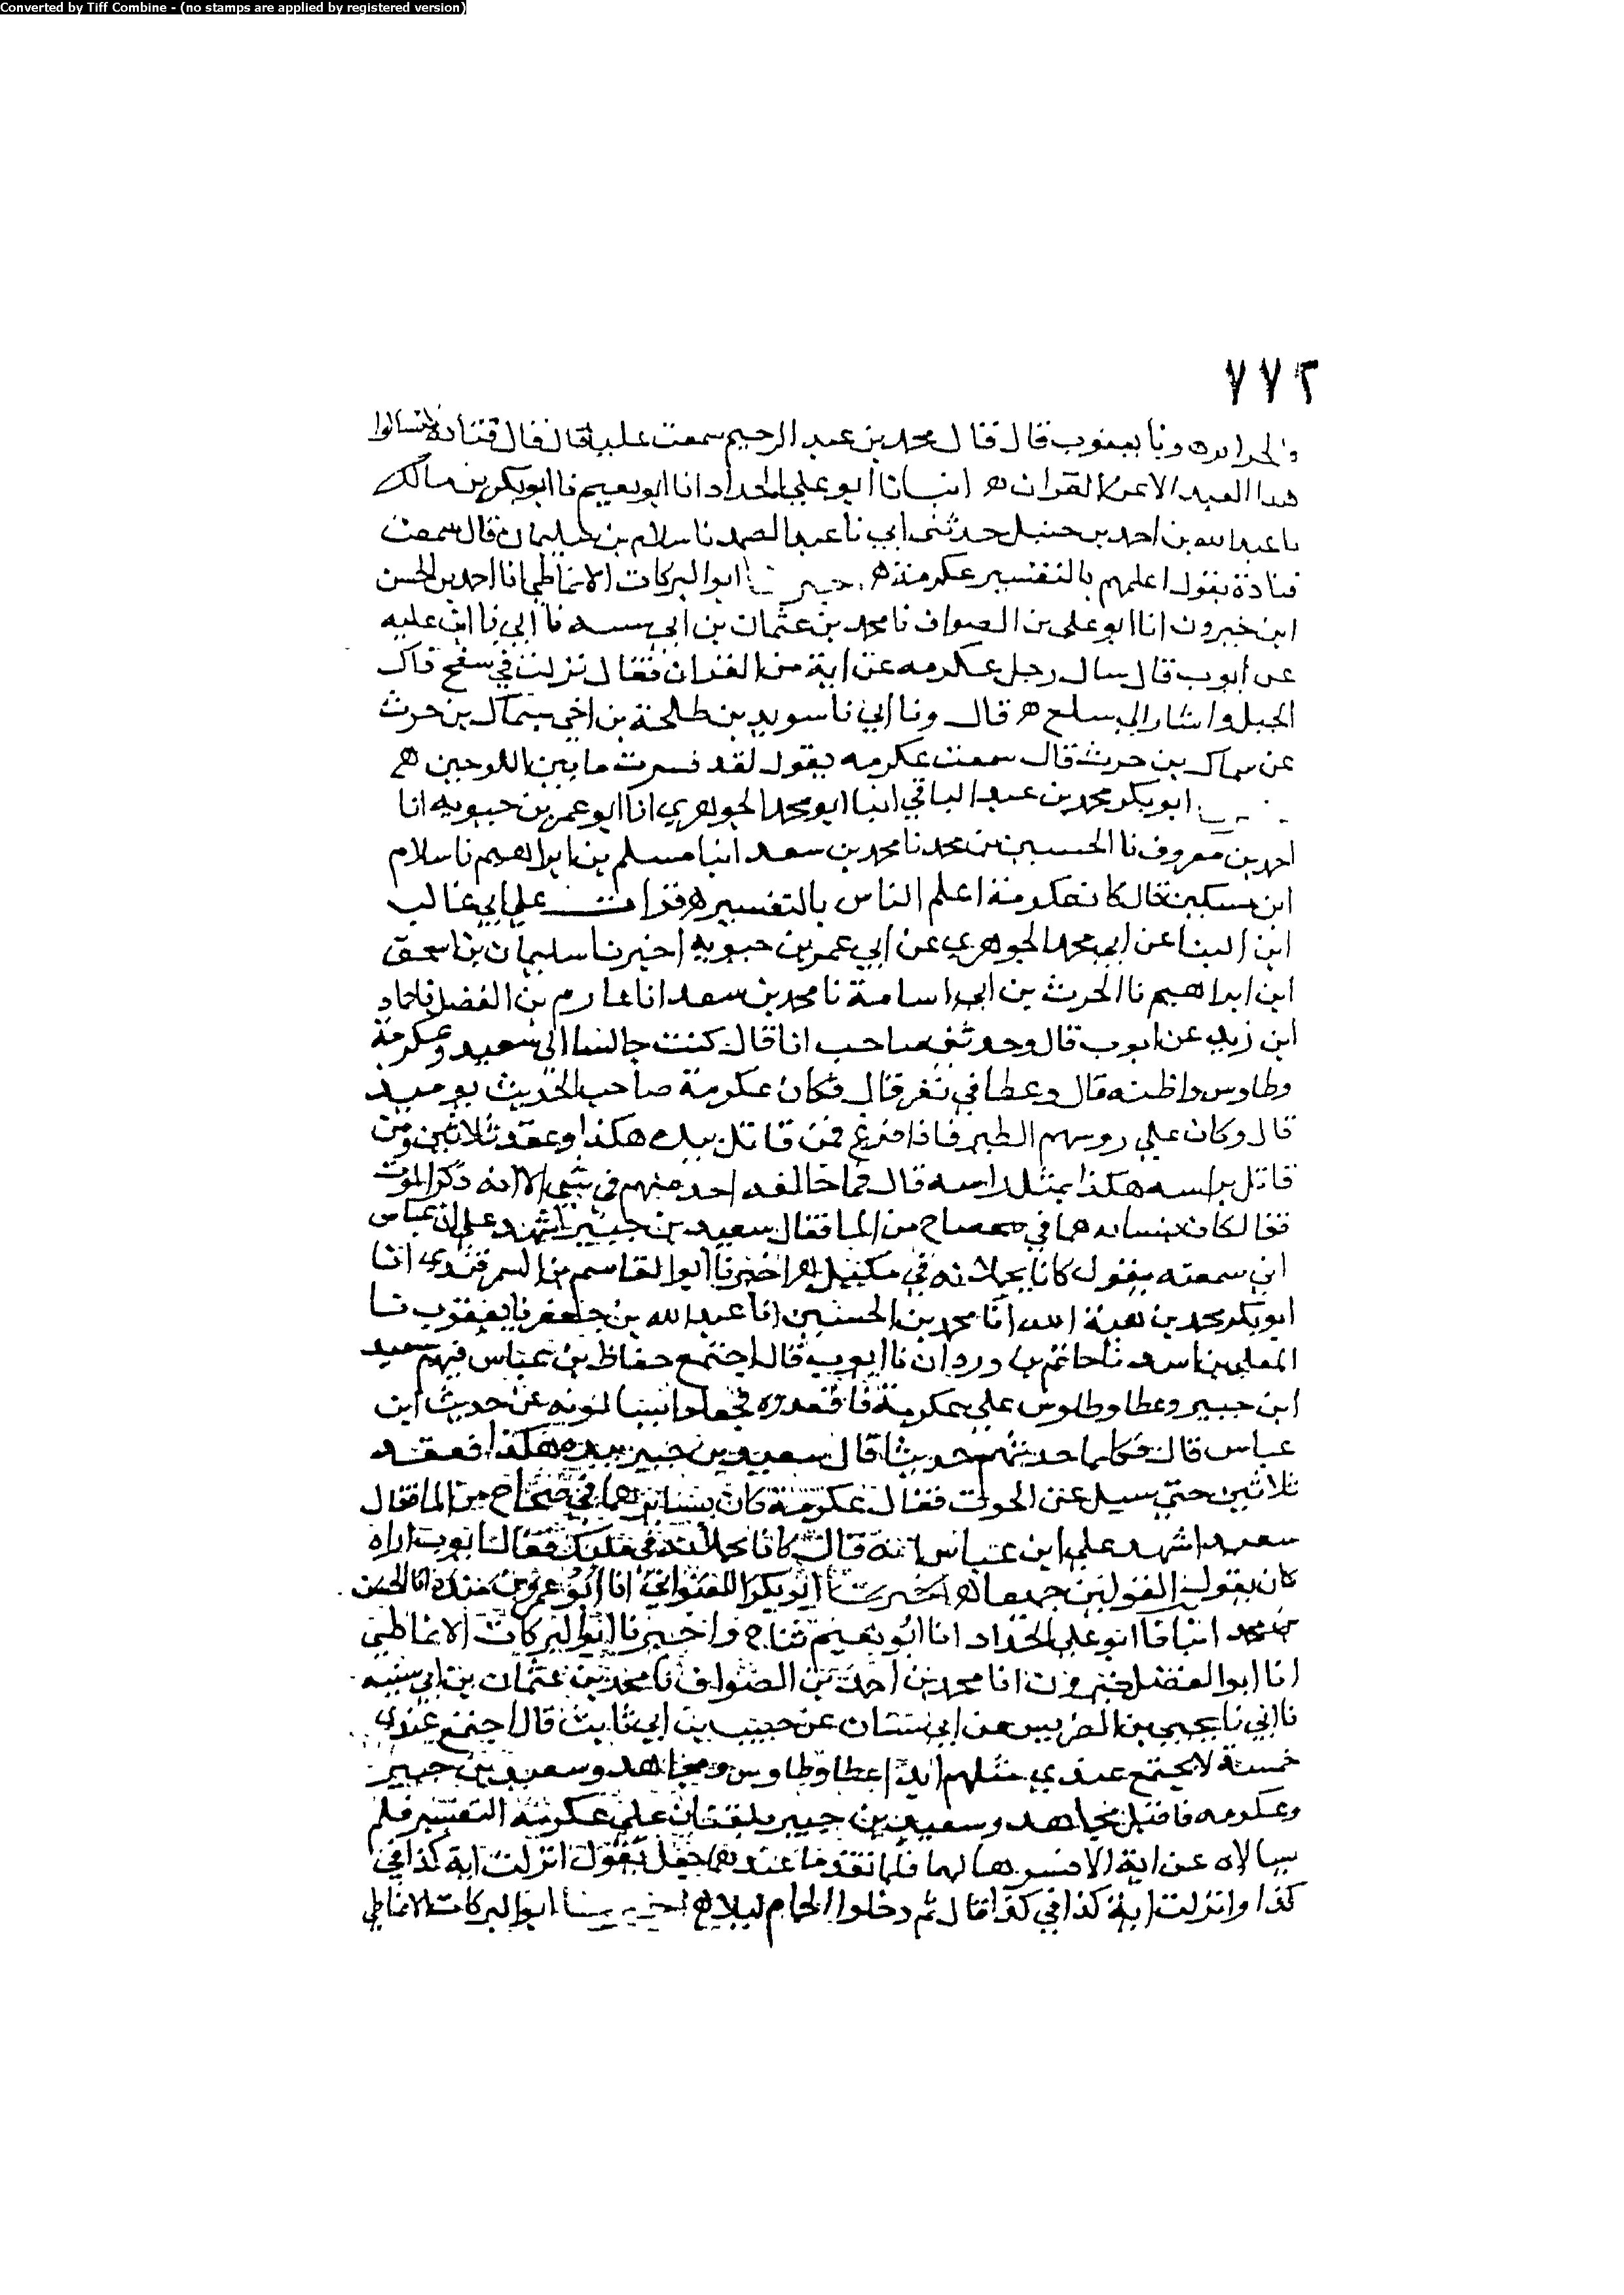 Converted by Tiff Combine - (no stamps are applied by registered version)
٧٧٢
ونا يعقوب قال قال محمد بن عبد الرحيم سمعت عليا قال قال قتادة لا تسالوا
هذا العبد الا عن القران ه انبانا ابو علي الحداد انا ابو نعيم نا ابو بكر بن مالك
نا عبد الله بن احمد بن حنبل حدثني ابي نا عبد الصمد نا سلام بن قال سمعت
قتادة يقول اعلمهم بالتفسير عكرمة ه ابو البركات الانماطي انا احمد بن الحسن
ابن خيرون انا ابو علي بن الصواف نا محمد بن عثمان بن ابي شيبه نا ابي نا ابن عليه
عن ايوب قال سال رجل عكرمه عن اية من القران فقال نزلت في سفح ذاك
الجبل واشار الي سلع ه قال ونا ابي نا سويد بن طلحة بن اخي سماك بن حرث
عن سماك بن حرث قال سمعت عكرمه يقول لقد فسرت ما بين اللوحين ه
ابو بكر محمد بن عبد الباقي انبا ابو محمد الجوهري انا ابو عمر بن حيويه انا
احمد بن معروف نا الحسين بن محمد نا محمد بن سعد انبا مسلم بن ابراهيم نا سلام
ابن مسكين قال كان عكرمة اعلم الناس بالتفسير ه قرات علي ابي غالب
ابن البنا عن ابي محمد الجوهري عن ابي عمر بن حيويه اخبرنا سليمان بن اسحق
ابن ابراهيم نا الحرث بن ابي اسامة نا محمد بن سعد انا عارم بن الفضل نا حماد
ابن زيد عن ايوب قال وحدثني صاحب انا قال كنت جالسا الي سعيد وعكرمة
وطاوس واظنه قال وعطا في نفر قال فكان عكرمة صاحب الحديث يوميد
قال وكان علي روسهم الطير فاذا فرغ فمن قائل بيده هكذا وعقد ثلاثين ومن
قائل براسه هكذا يميل راسه قال فما خالفه احد منهم في شي الا انه ذكر الحوت
فقال كان يسايرهما في ضحضاح من الما فقال سعيد بن جبير اشهد علي ابن عباس
اني سمعته يقول كانا يحملانه في مكتل ه اخبرنا ابو القاسم بن السمرقندي انا
ابو بكر محمد بن هبة الله انا محمد بن الحسين انا عبد الله بن جعفر نا يعقوب نا
المعلي بن اسد نا حاتم بن وردان نا ايوب قال اجتمع حفاظ بن عباس فيهم سعيد
ابن جبير وعطا وطاوس علي عكرمة فاقعدوه فجعلوا يسالونه عن حديث ابن
عباس قال فكلما حدثهم حديثا قال سعيد بن جبير بيده هكذا فعقد
ثلاثين حتي سيل عن الحوت فقال عكرمة كان يسايرهما في ضحضاح من الما فقال
سعيد اشهد علي ابن عباس انه قال كانا يحملانه في مكتل فقال ايوب اراه
كان يقول القولين جميعا ه اخبرنا ابو بكر اللفتواني انا ابو عمرو بن منده انا الحسن
بن محمد انبانا ابو علي الحداد انا ابو نعيم ثنا ح واخبرنا ابو البركات الانماطي
انا ابو الفضل خيرون انا محمد بن احمد بن الصواف نا محمد بن عثمان بن ابي شيبه
نا ابي نا يحيي بن الضريس عن ابي سنان عن حبيب بن ابي ثابت قال اجتمع عندي
خمسة لا يجتمع عندي مثلهم ابدا عطا وطاوس ومجاهد وسعيد بن جبير
وعكرمه فاقبل مجاهد وسعيد بن جبير يلقيان علي عكرمة التفسير فلم
يسالاه عن اية الا فسرها لهما فلما نفد ما عندهما جعل يقول انزلت اية كذا في
كذا وانزلت اية كذا في كذا قال ثم دخلوا الحمام ليلا ه ابو البركات الانماطي